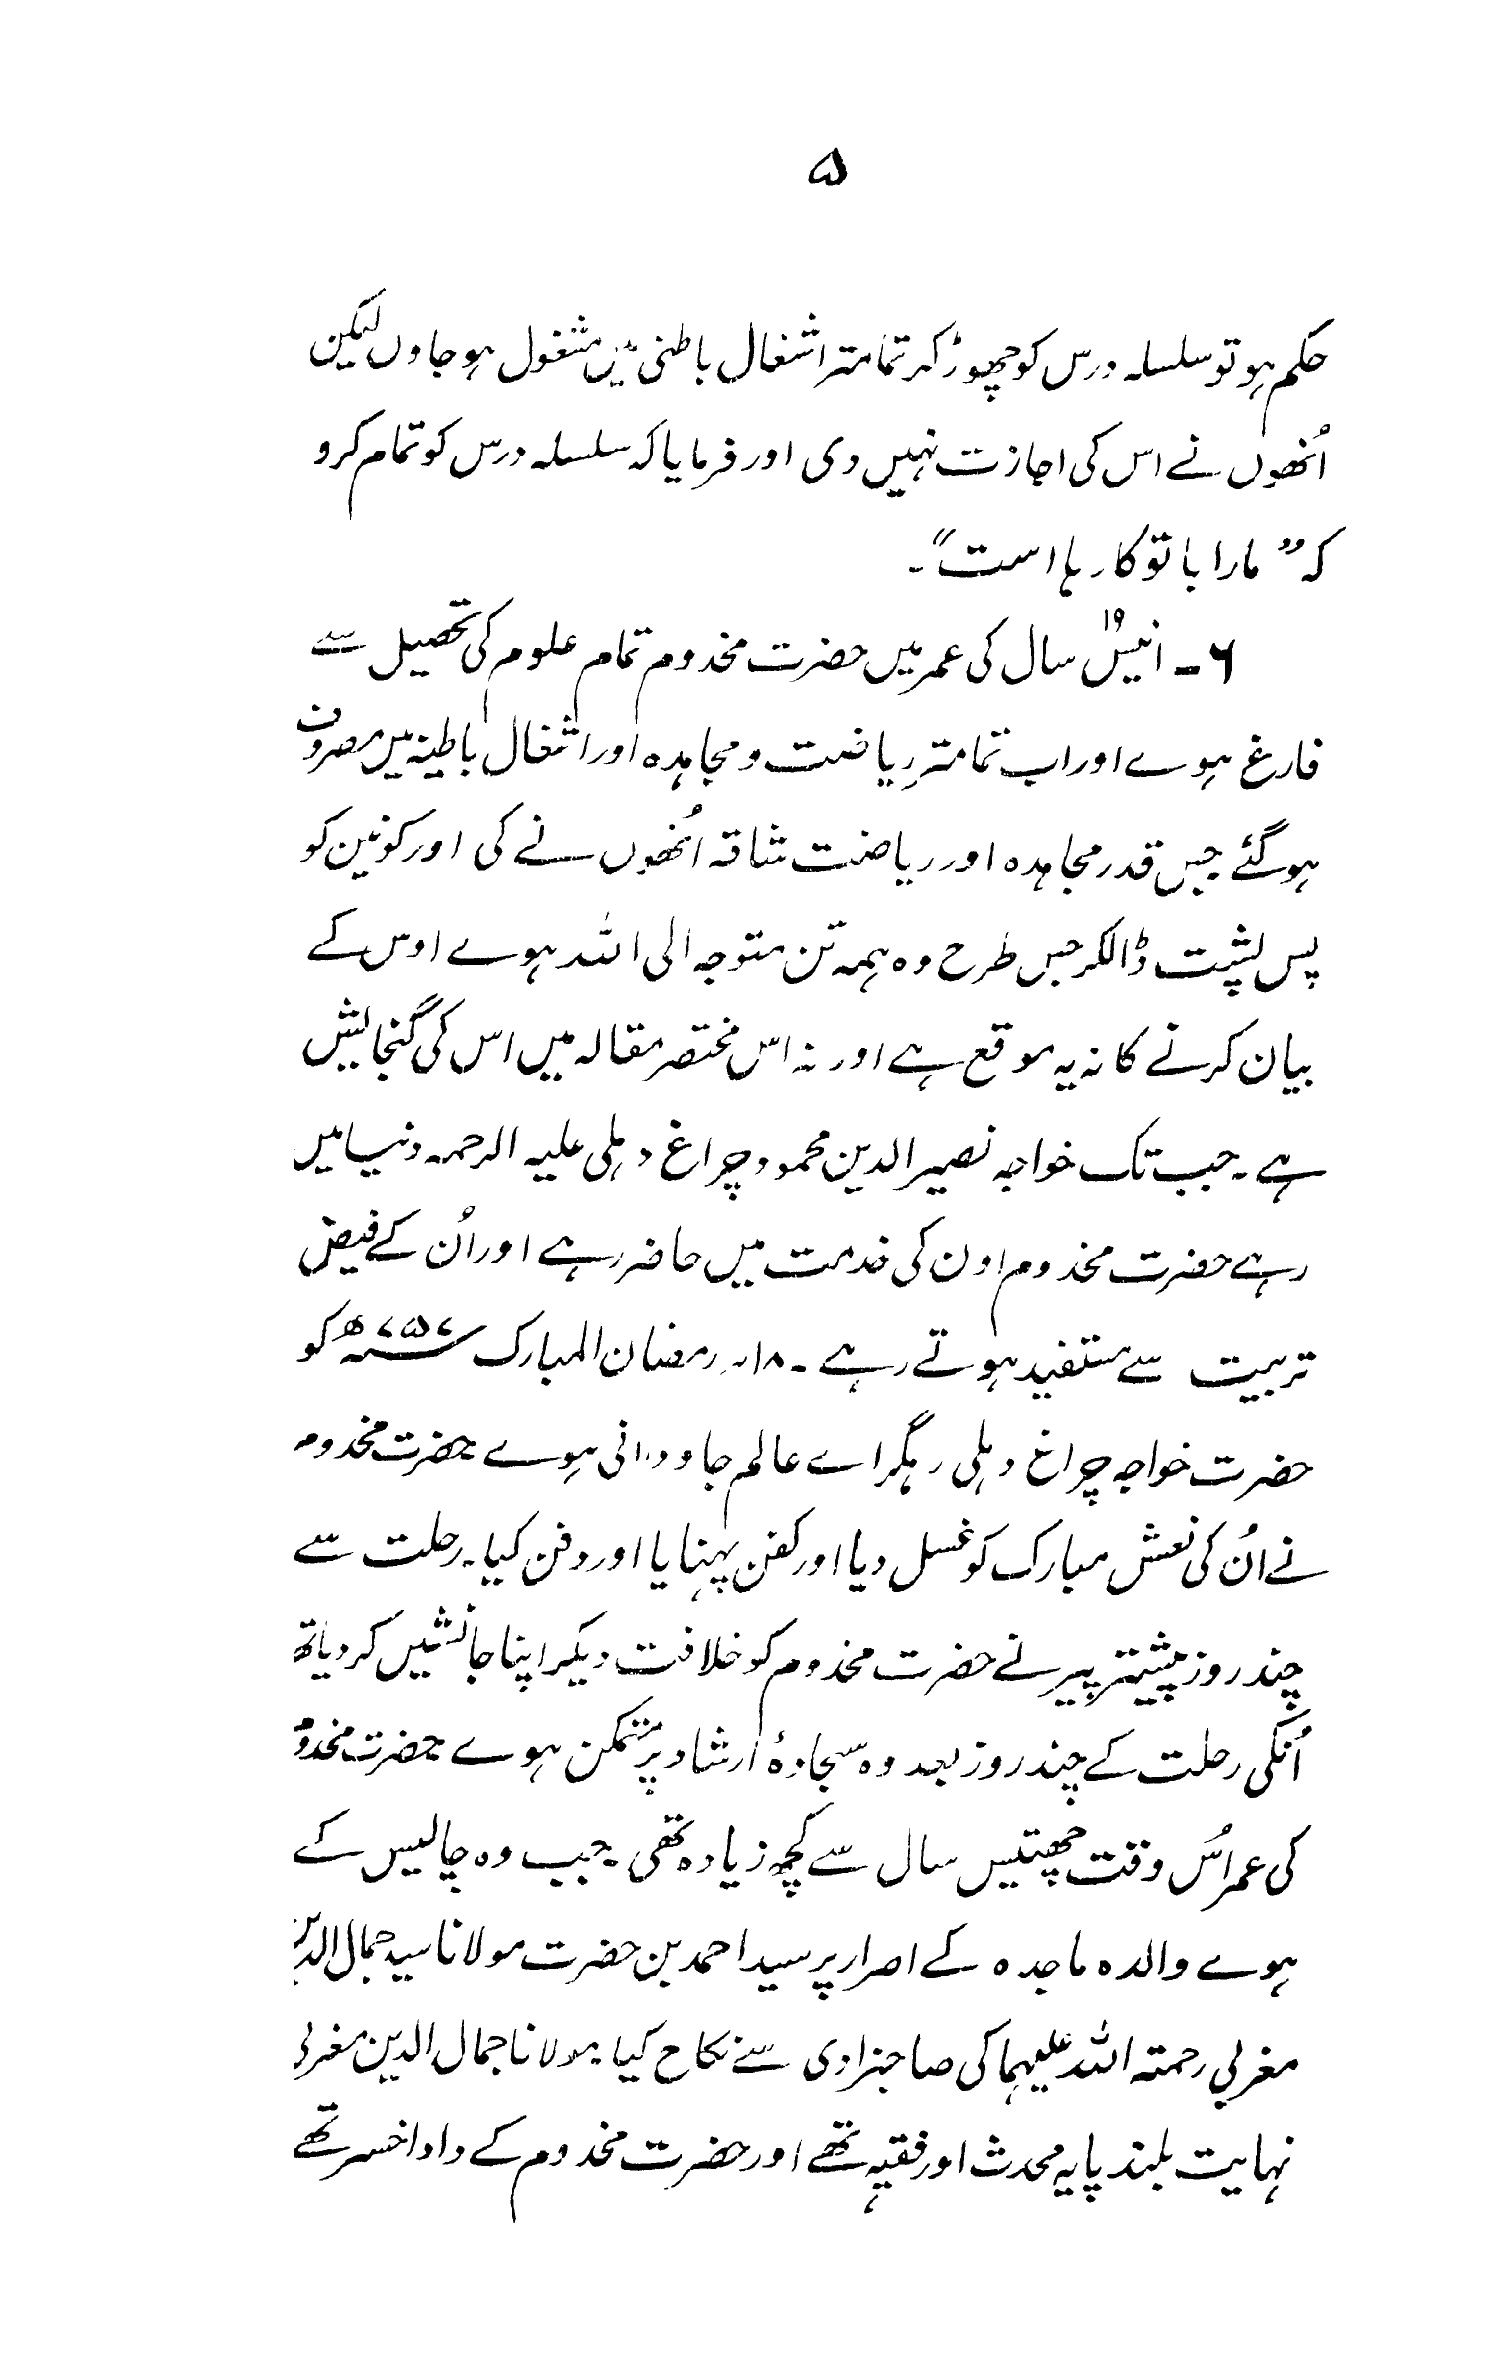 ۵
حکم ہو تو سلسلہ درس کو چھوڑ کر تمامتر اشغال باطنی میں مشغول ہو جاوں لیکن
اُنھوں نے اس کی اجازت نہیں دی اور فرمایا کہ سلسلہ درس کو تمام کرو
کہ ”مارا با تو کارہا است“۔
۶۔ انیس ۱۹ سال کی عمر میں حضرت مخدوم تمام علوم کی تحصیل سے
فارغ ہوے اور اب تمامتر ریاضت و مجاہدہ اور اشغال باطینہ میں مصروف
ہوگئے جس قدر مجاہدہ اور ریاضت شاقہ اُنھوں نے کی اور کونین کو
پس پشت ڈالکر جس طرح وہ ہمہ تن متوجہ الی اللہ ہوے اوس کے
بیان کرنے کا نہ یہ موقع ہے اور نہ اس مختصر مقالہ میں اس کی گنجایش
ہے۔ جب تک خواجہ نصیر الدین محمود چراغ دہلی علیہ الرحمہ دنیا میں
رہے حضرت مخدوم اون کی خدمت میں حاضر رہے اور اُن کے فیض
تربیت سے مستفید ہوتے رہے۔ ۱۸؍ رمضان المبارک ۷۵۷ھ کو
حضرت خواجہ چراغ دہلی رہگراے عالم جاودانی ہوے حضرت مخدوم
نے اُن کی نعش مبارک کو غسل دیا اور کفن پہنایا اور دفن کیا۔ رحلت سے
چند روز پیشتر پیر نے حضرت مخدوم کو خلافت دیکر اپنا جانشیں کر دیا تھ
اُنکی رحلت کے چند روز بعد وہ سجادۂ ارشاد پر متمکن ہوے حضرت مخدوم
کی عمر اُس وقت چھتیس سال سے کچھ زیادہ تھی۔ جب وہ چالیس کے
ہوے والدہ ماجدہ کے اصرار پر سید احمد بن حضرت مولانا سید جمال الدین
مغربی رحمتہ اللہ علیہما کی صاحبزادی سے نکاح کیا۔ مولانا جمال الدین مغربی
نہایت بلند پایہ محدث اور فقیہ تھے اور حضرت مخدوم کے دادا خسر تھے